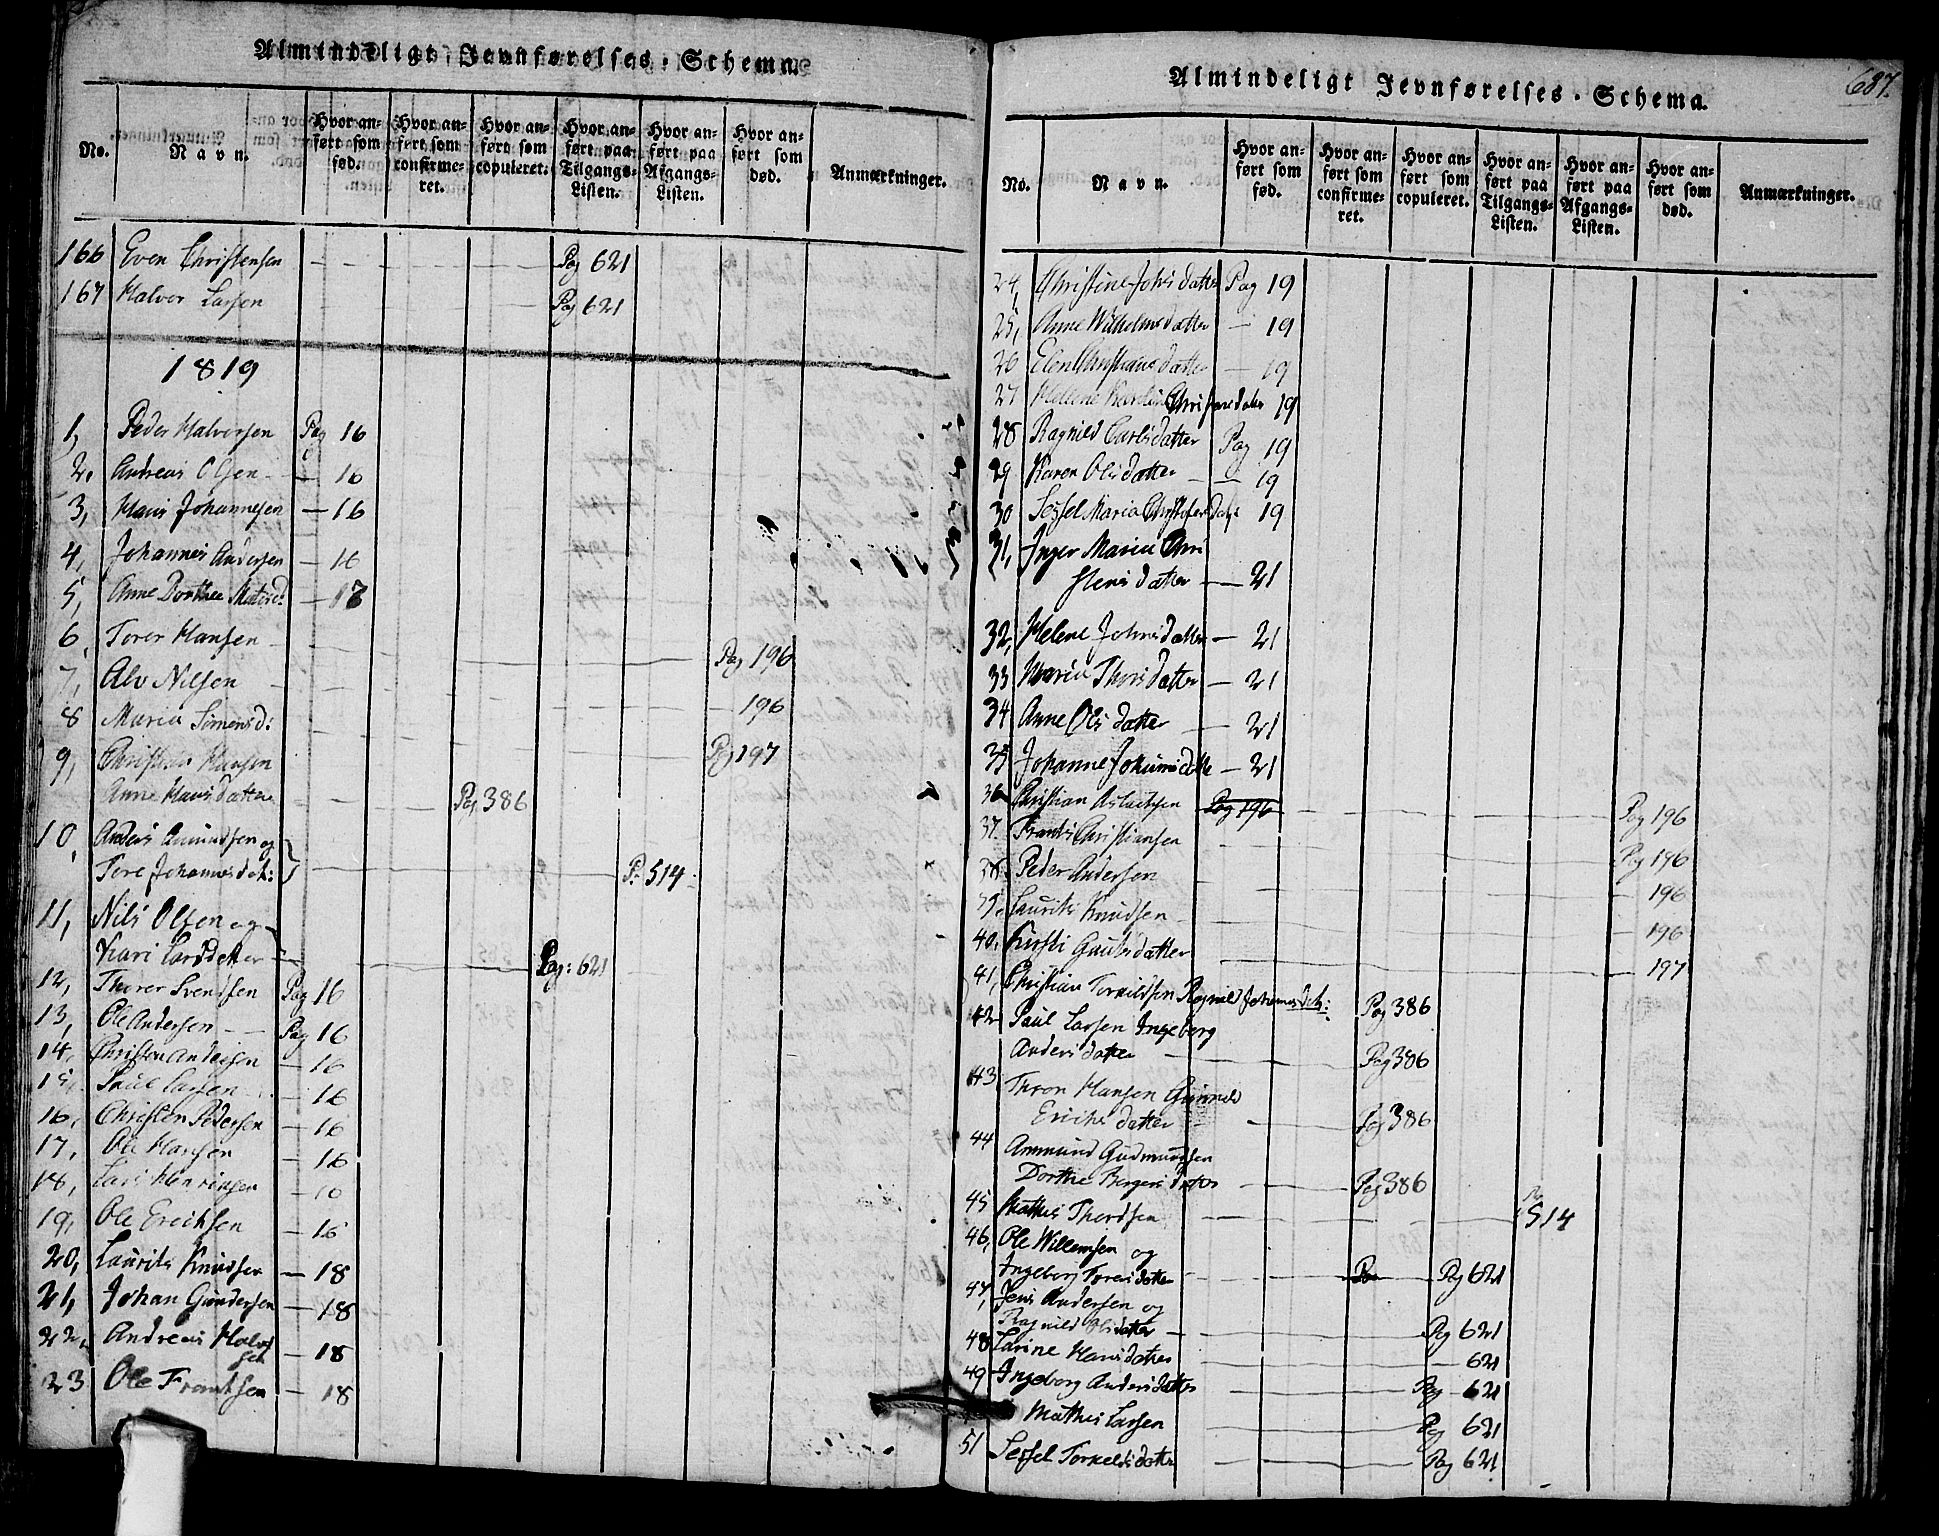 Almindeligt Jevnførelses-Schema.
No. Navn. Hvor anført som fød. Hvor anført som confirmeret. Hvor anført som copuleret. Hvor anført paa Tilgangs-Listen. Hvor anført paa Afgangs-Listen. Hvor anført som død. Anmærkninger.
166 Even Christensen Pag 621
167 Halvor Larsen Pag 621
1819
1, Peder Halvorsen Pag 16
2. Andreas Olsen 16
3, Hans Johannesen — 16
4, Johannes Andersen — 16
5, Anne Dorthee
6, Torer Hansen Pag 196
7, Alv Nilsen 196
8 Maria Simensd: Pg 197
9, Christian Hansen
Anne Hansdatter Pag 386
10, Anders Amundsen og
Tore Johannesdat: P. 514
11, Nils Olsen og
Kari Larsdatter Pag: 621
12, Thorer Svendsen Pag 16
13, Ole Andersen Pag 16
14, Christen Andersen — 16
15, Paul Larsen — 16
16, Christen Pedersen — 16
17, Ole Hansen — 16
18, Lars Henriksen — 16
19, Ole Erichsen — 16
20, Laurits Knudsen — 18
21, Johan Gundersen — 18
22, Andreas Halvor
sen — 18
23 Ole Frantsen — 18
687.
Almindeligt Jevnførelses-Schema.
No. Navn. Hvor anført som fød. Hvor anført som confirmeret. Hvor anført som copuleret. Hvor anført paa Tilgangs-Listen. Hvor anført paa Afgangs-Listen. Hvor anført som død. Anmærkninger.
24, Christine Johsdatter Pag 19
25, Anne Wilhelmsdatter — 19
26 Elen Christiansdatter — 19
27 Helene Karline 19
28 Ragnild Carlsdatter Pag 19
29 Karen Olsdatter — 19
30 Sessel Maria 19
31, Inger Maria Chri
stensdatter — 21
32, Helene Johnsdatter — 21
33 Maria Thorsdatter — 21
34 Anne Olsdatter — 21
35 Johanne — 21
36 Christian Aslachsen Pag 196 Pag 196
37. Frants Christiansen Pg 196
38 Peder Andersen 196
39. Laurits Knudsen 196
40, Kirsti Gautesdatter 197
41, Christian Torkildsen Ragnild Johannesdat: Pag 386
42 Paul Larsen Ingeberg
Andersdatter Pag 386
43 Thron Hansen Gunnild
Erichsdatter Pag 386
44 Ammund Gudmundsen
Dorthe Pag 386
45 Mathis Thordsen P. 514
46, Ole Willemsen og
Ingeborg Toresdatter Pg 621
47, Jens Andersen og
Ragnild Olsdatter Pg 621
48 Larine Hansdatter — 621
49 Ingeborg Andersdatter Pag 621
Mathis Larsen Pag 621
51 Sessel Torkeldsdatter Pag 621